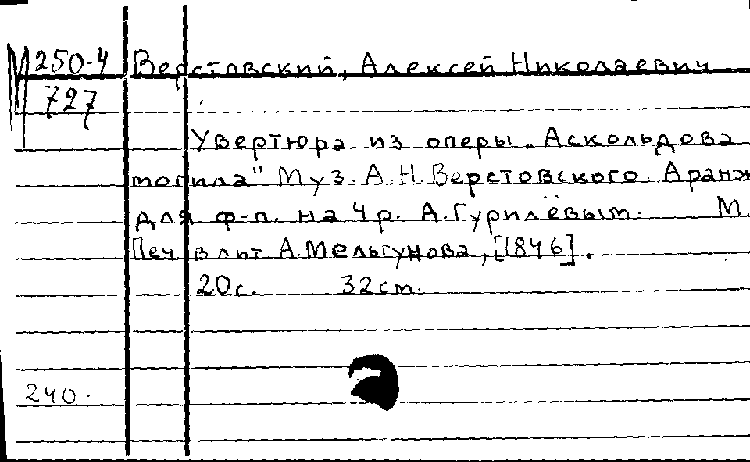 М 250-4 Верстовский, Алексей Николаевич
727
Увертюра из оперы „Аскольдова
могила" Муз. А.Н. Верстовского. Аранж
для ф-п. на 4 р. А. Гурилёвым. М.
Печ в лит А. Мельгунова, [1846].
20с. 32см.
240.